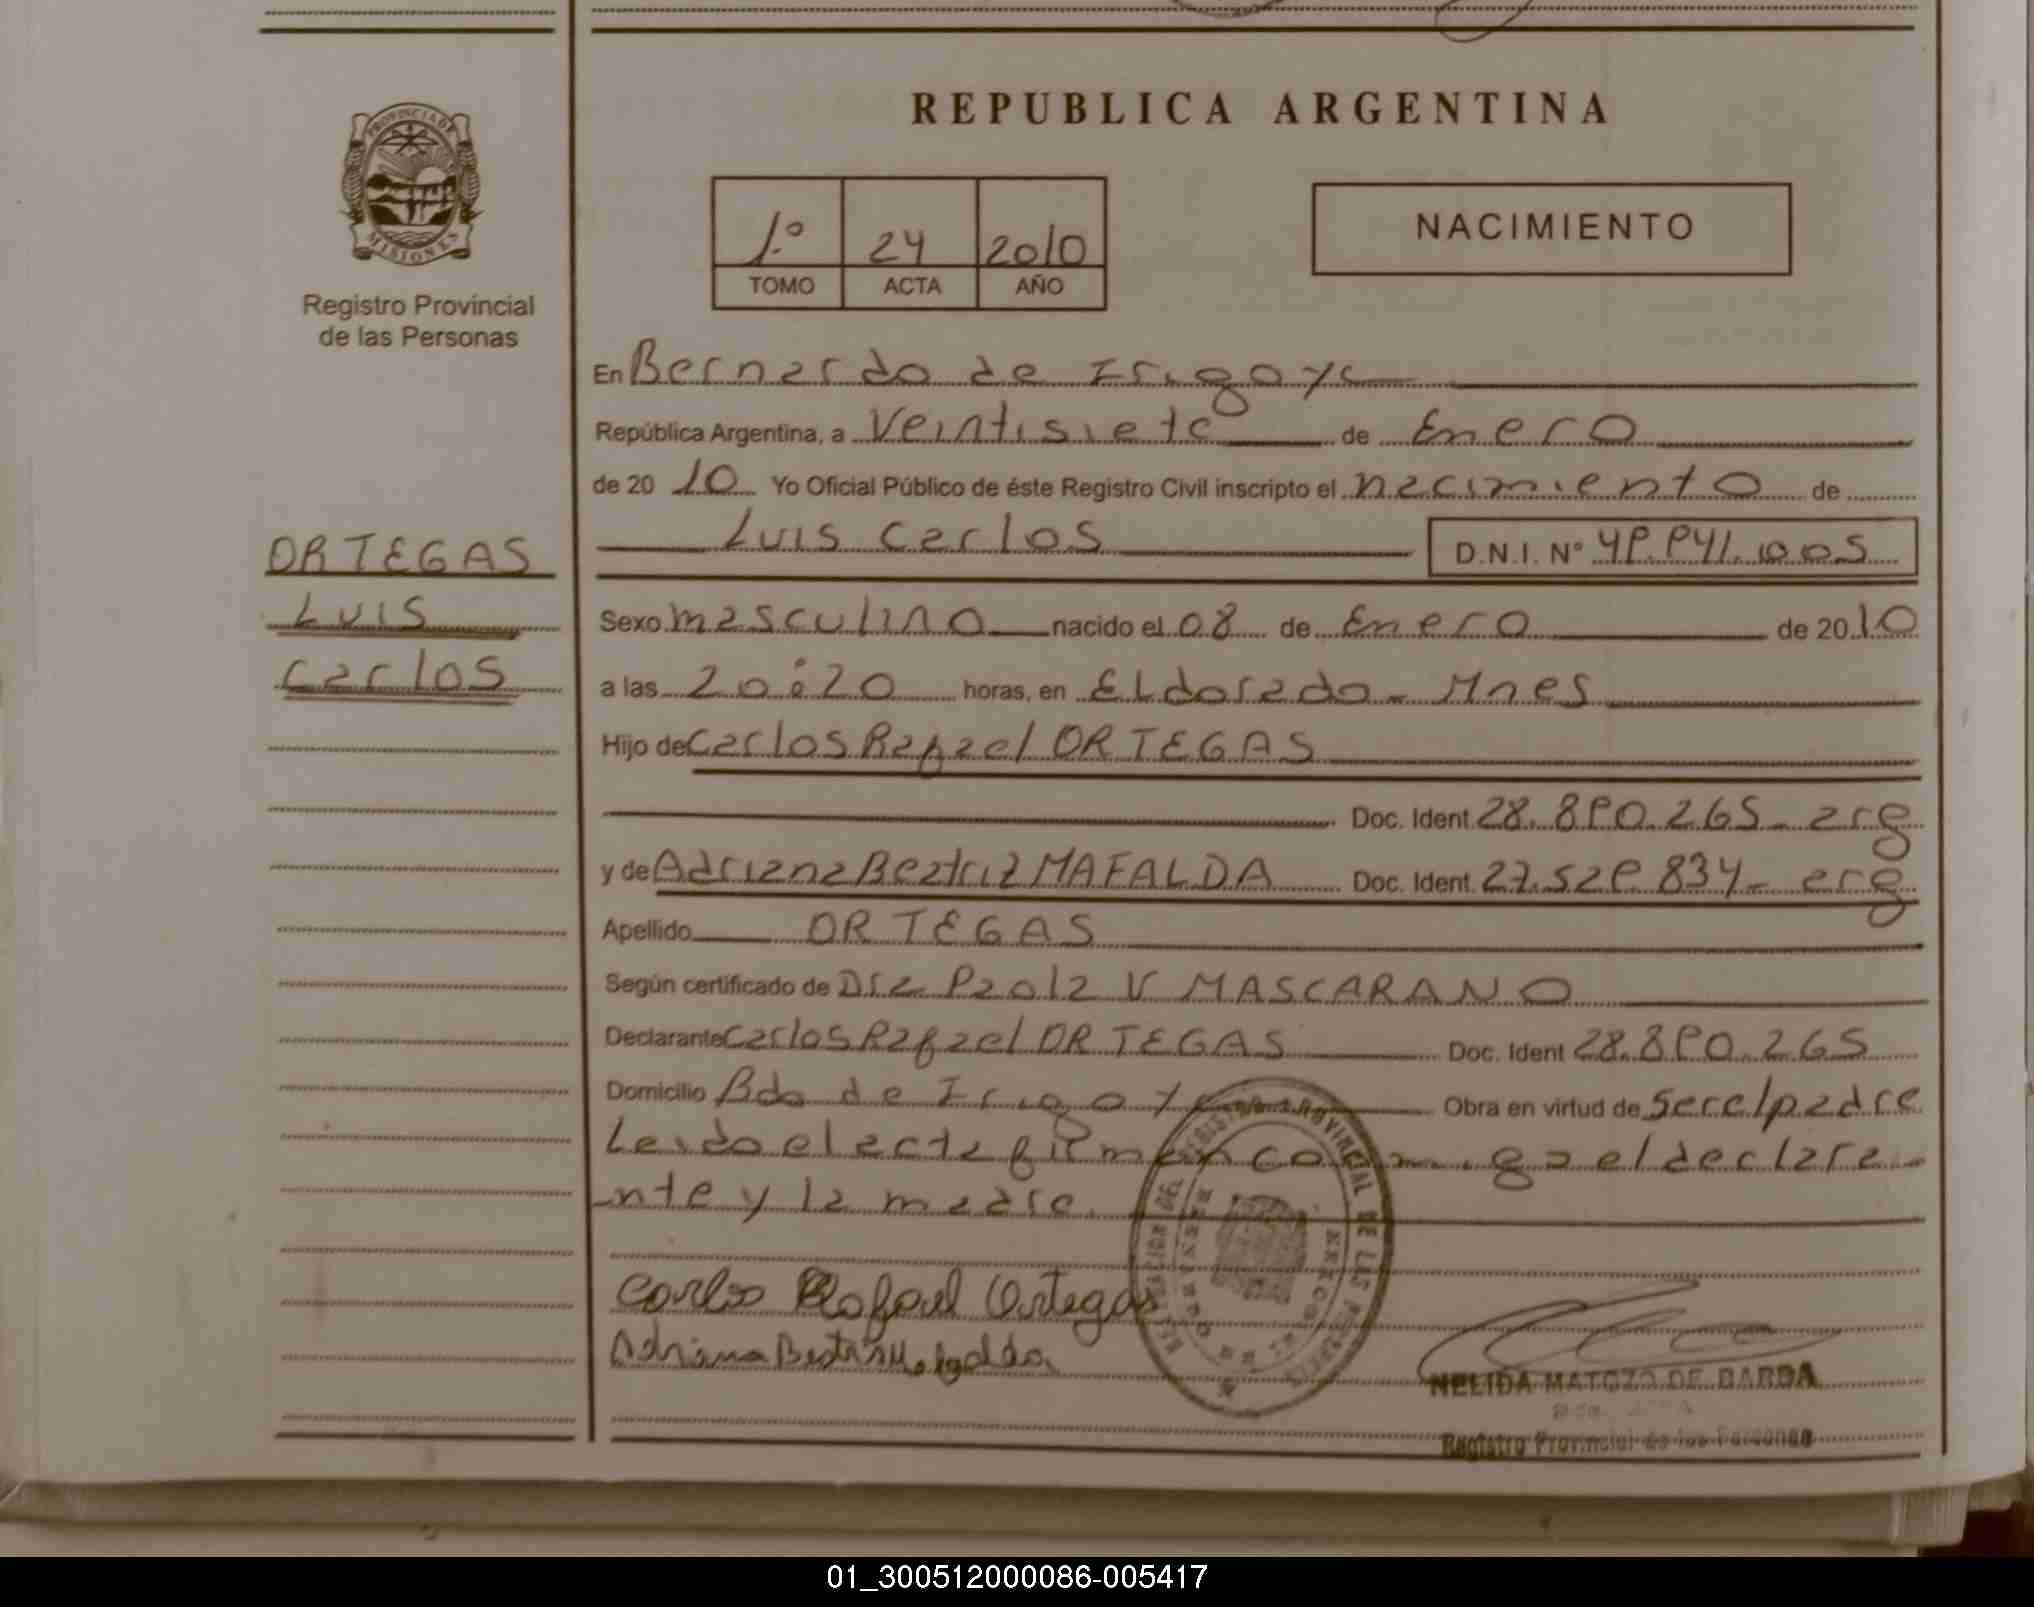 REPUBLICA ARGENTINA
PROVINCIA DE
MISIONES
Registro Provincial
de las Personas
1.º 24 2010
TOMO ACTA AÑO
NACIMIENTO
En Bernardo de Irigoye
República Argentina, a Veintisiete de Enero
de 2010 Yo Oficial Público de éste Registro Civil inscripto el nacimiento de
Luis Carlos D.N.I. Nº 49.941.005
ORTEGAS
Luis
Carlos
Sexo masculino nacido el 08 de Enero de 2010
a las 20:20 horas, en Eldorado - Mnes
Hijo de Carlos Rafael ORTEGAS
Doc. Ident 28.890.265 - arg
y de Adriana Beatriz MAFALDA Doc. Ident. 27.529.834 - arg
Apellido ORTEGAS
Según certificado de Dra Paola V MASCARANO
Declarante Carlos Rafael ORTEGAS Doc. Ident 28.890.265
Domicilio Bdo de Irigoye Obra en virtud de ser el padre
Leido el acta firman conmigo el declara-
nte y la madre.
Carlos Rafael Ortegas
Adriana Beatriz Mafalda
NELIDA MATOZO DE BARDA
Registro Provincial de las Personas
01_300512000086-005417